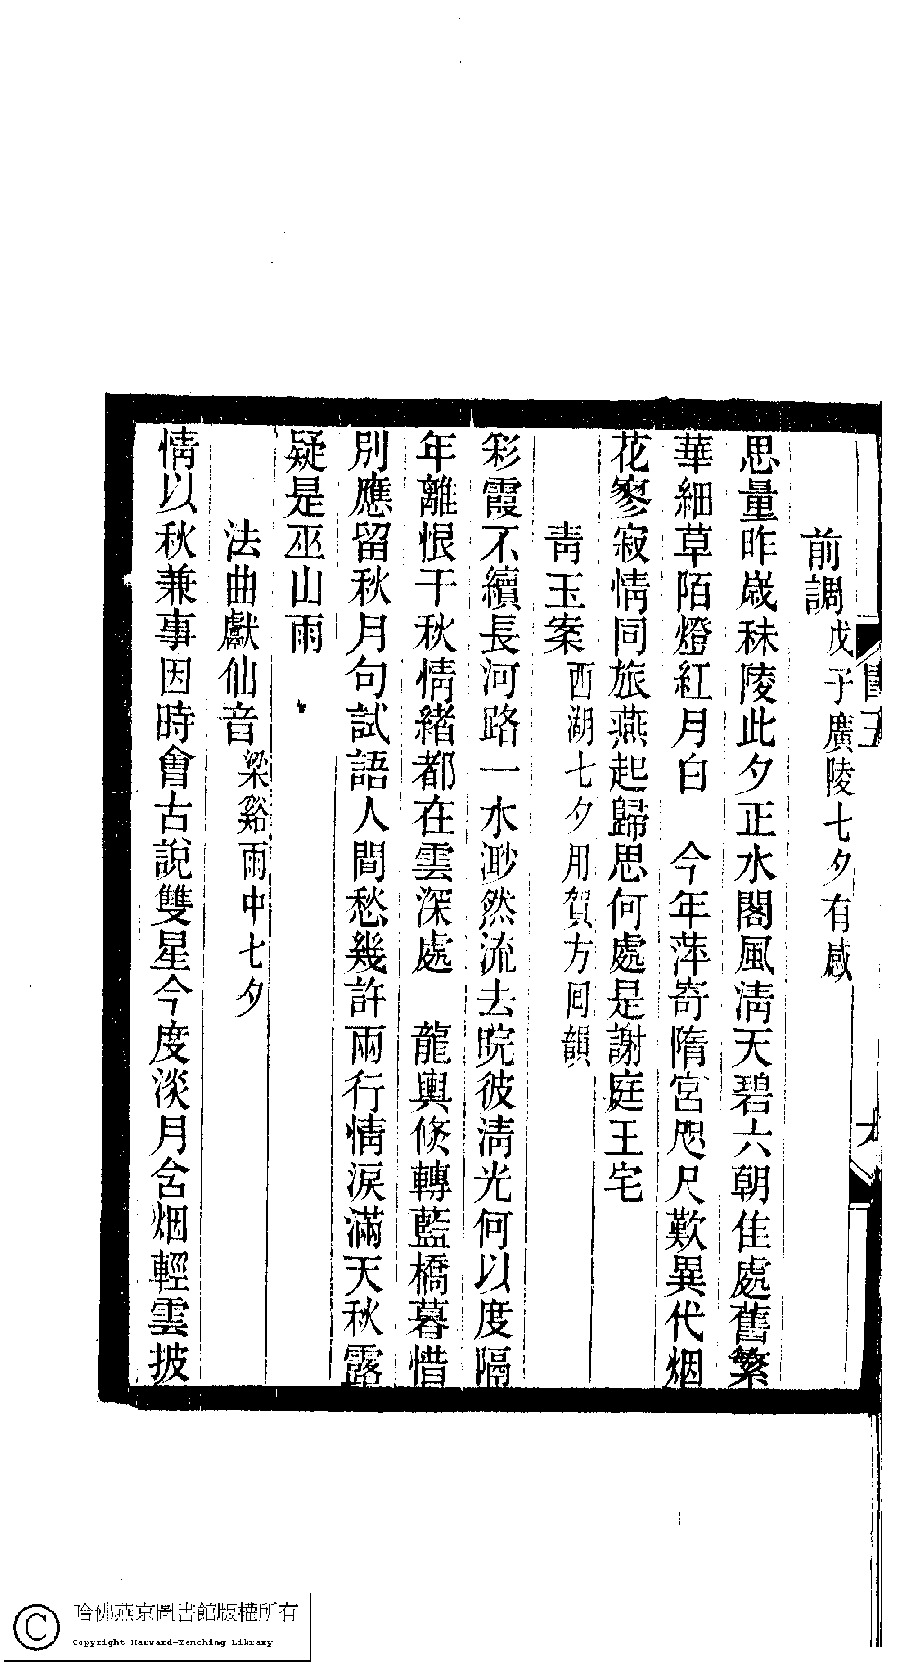 前調戊子廣陵七夕有感
思量昨歳秣陵此夕正水閣風淸天碧六朝佳處舊繁
華細草陌燈紅月白　今年萍寄隋宮咫尺歎異代烟
花寥寂情同旅燕起歸思何處是謝庭王宅
靑玉案西湖七夕用賀方囘韻
彩霞不續長河路一水渺然流去睆彼淸光何以度隔
年離恨千秋情緒都在雲深處　龍輿倐轉藍橋暮惜
別應留秋月句試語人間愁幾許兩行情淚滿天秋露
疑是巫山雨
法曲獻仙音梁谿雨中七夕
情以秋兼事因時會古說雙星今度淡月含烟輕雲披
哈佛燕京圖書館版權所有
Copyright Harvard-Yenching Library